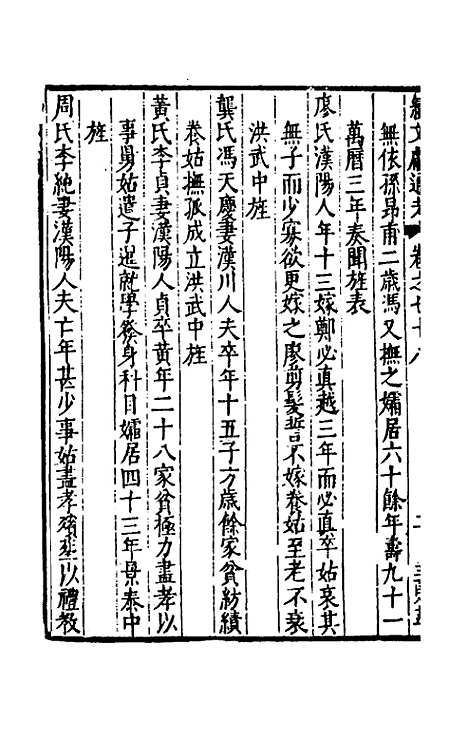 續文獻通考 卷之七十八
無依孫昂甫二歲馮又撫之孀居六十餘年壽九十一
萬曆三年奏聞旌表
廖氏漢陽人年十三嫁鄭必真越三年而必真卒姑哀其
無子而少寡欲更嫁之廖剪髮誓不嫁養姑至老不衰
洪武中旌
龔氏馮天慶妻漢川人夫卒年十五子方歲餘家貧紡績
養姑撫孤成立洪武中旌
黃氏李貞妻漢陽人貞卒黃年二十八家貧極力盡孝以
事舅姑遣子暹就學發身科目孀居四十三年景泰中
旌
周氏李純妻漢陽人夫亡年甚少事姑盡孝殯塟以禮教